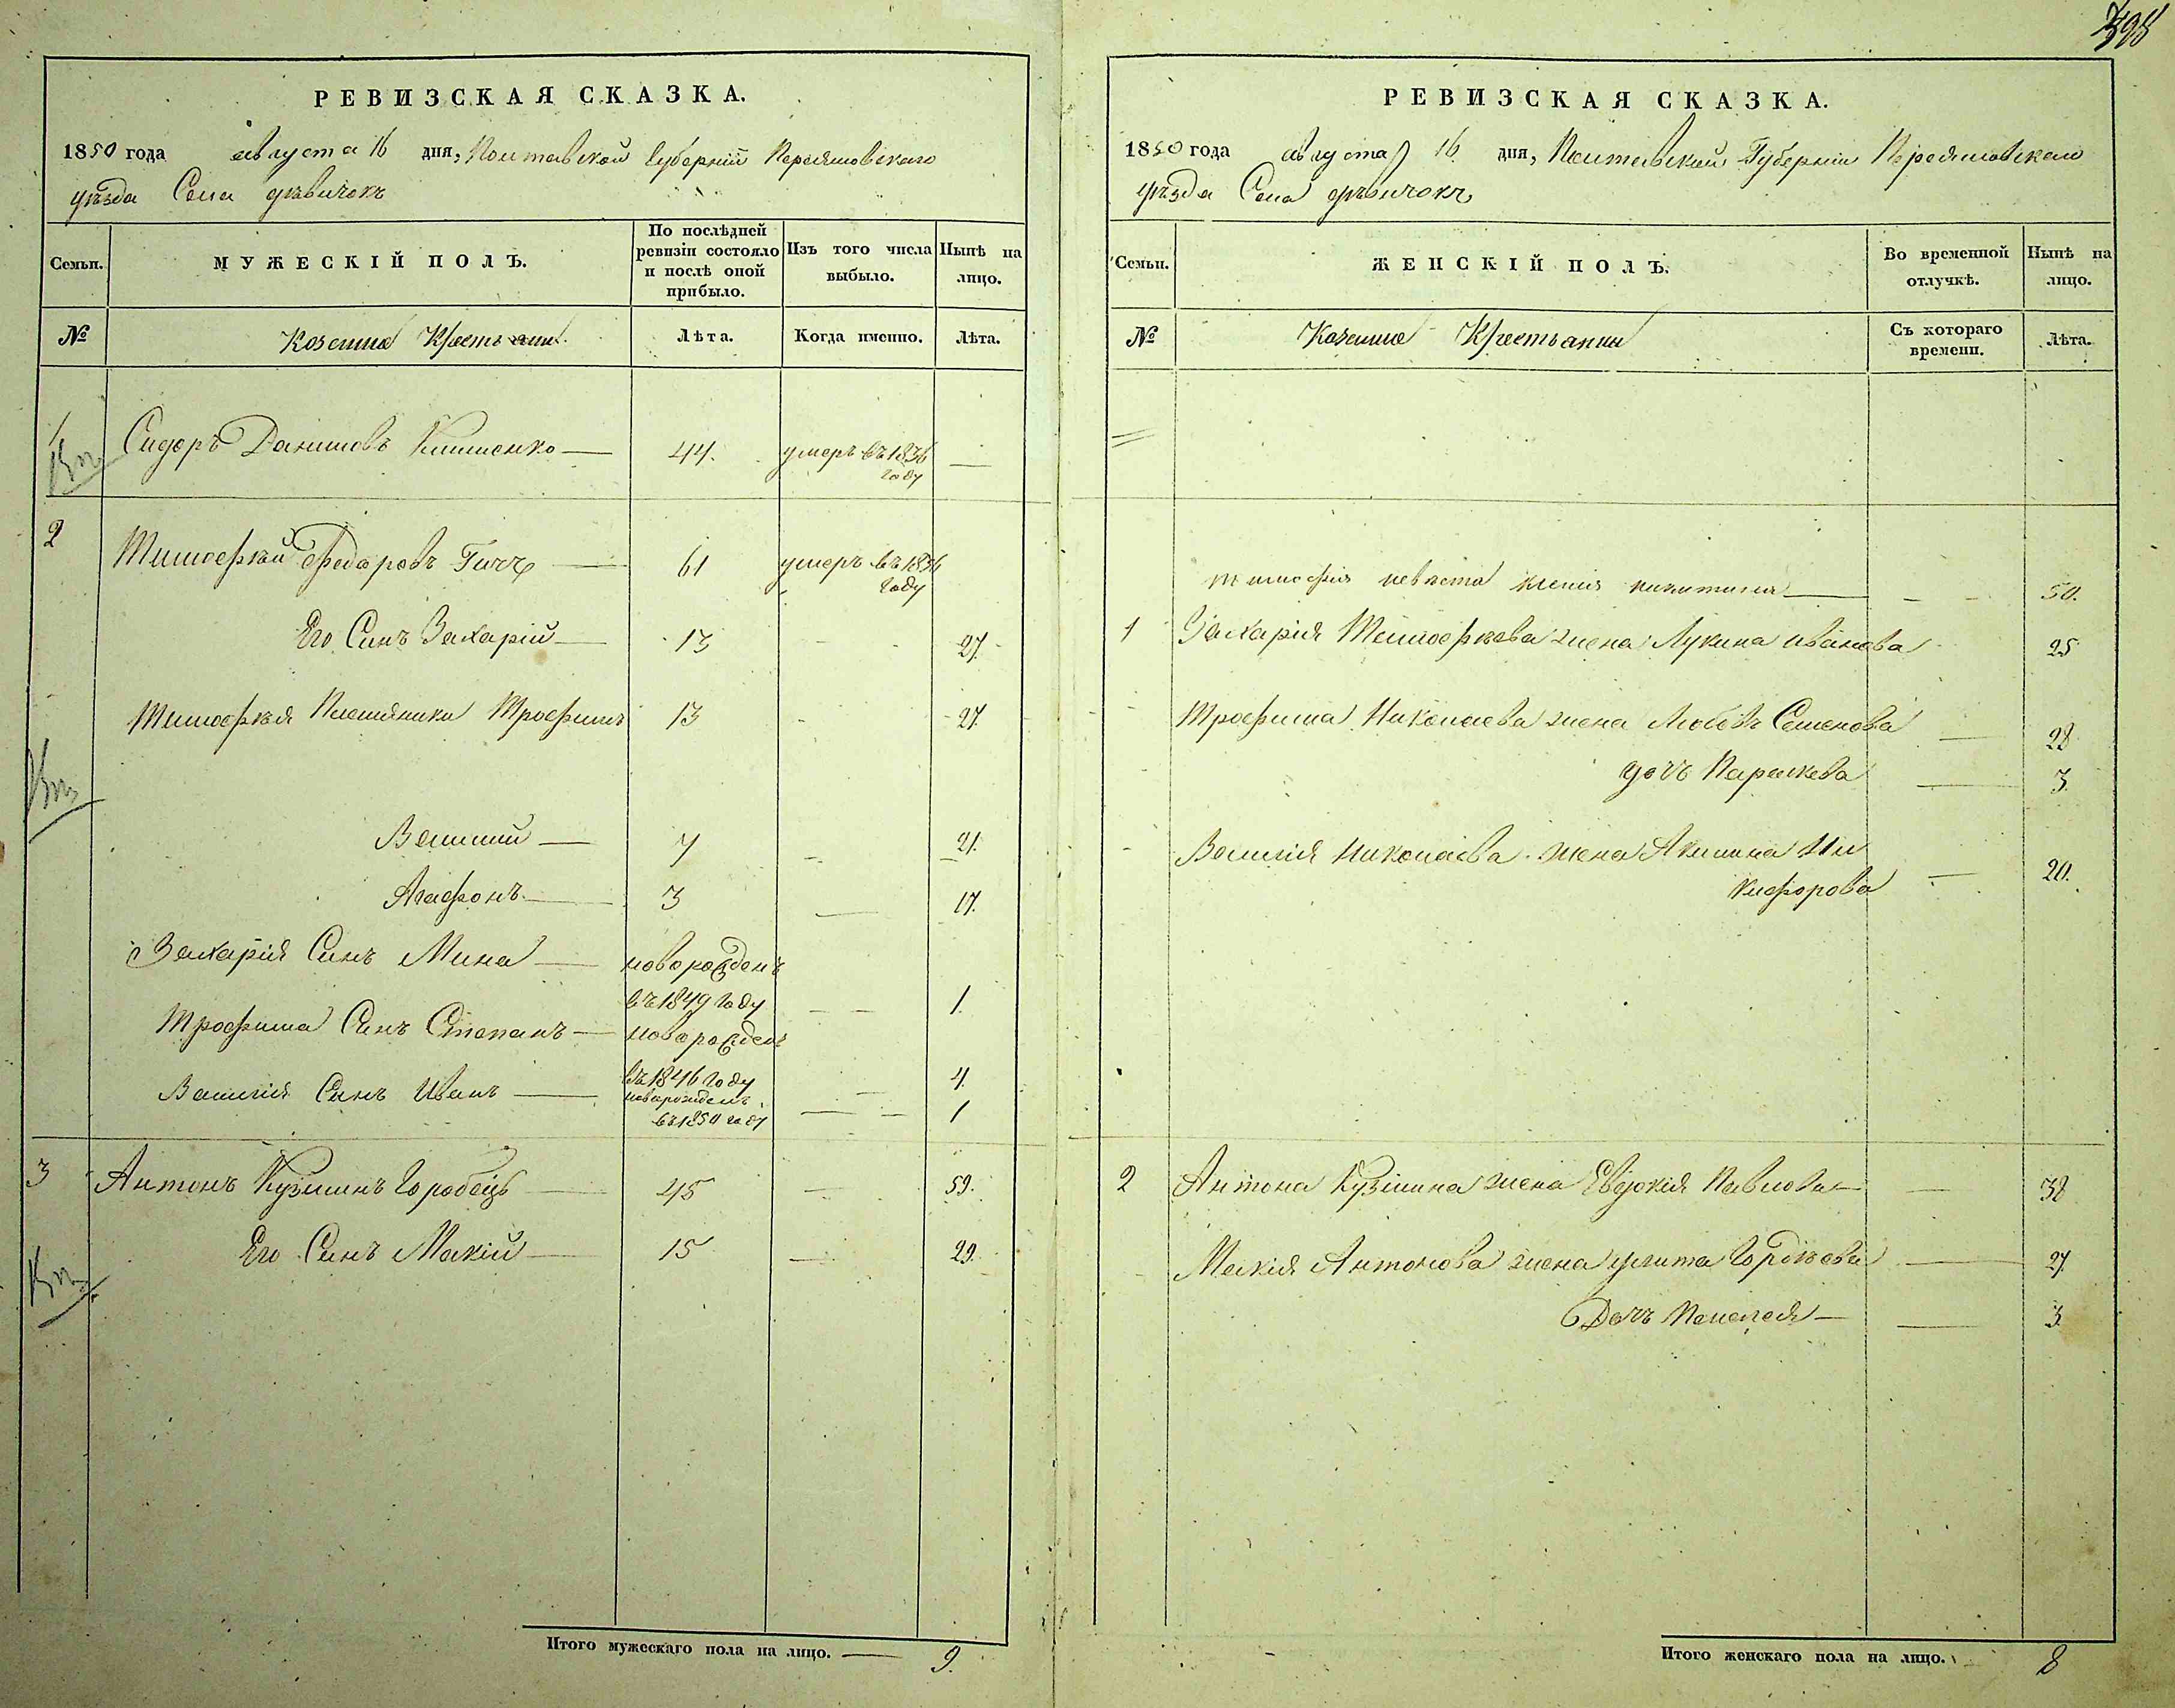 398
РЕВИЗСКАЯ СКАЗКА.
1850 года августа 16 дня, Полтавской Губерніи Переяславскаго
уѣзда Села дѣвичокъ
Семьи.
МУЖЕСКІЙ ПОЛЪ.
По послѣдней ревизіи состояло и послѣ оной прибыло.
Изъ того числа выбыло.
Нынѣ на лицо.
№
Козенные Крестьяни
Лѣта.
Когда именно.
Лѣта.
1 Сидоръ Даниловъ 44. умеръ въ 1836 году —
2 Тимофѣй Федоровъ 61 умеръ въ 1836 году
Его Синъ Захарій 13 27.
Тимофѣя Племяники Трофимъ 13 27.
Василий 7 21.
Агафонъ 3 17.
Захарія Синъ Мина новорожденъ въ 1849 году 1.
Трофима Синъ Степанъ новорожденъ въ 1846 году 4.
Василія Синъ Иванъ новорожденъ въ 1850 году 1
3 Антонъ Кузминъ Горобець 45 59.
Его Синъ Мокій 15 29.
Итого мужескаго пола на лицо. 9.
РЕВИЗСКАЯ СКАЗКА.
1850 года августа 16 дня, Полтавской Губерніи Переяславскаго
уѣзда Села дѣвичокъ
Семьи.
ЖЕНСКІЙ ПОЛЪ.
Во временной отлучкѣ.
Нынѣ на лицо.
№
Козенные Крестьянки
Съ котораго времени.
Лѣта.
Тимофѣя невѣста ксенія никитина 50.
1 Захарія Тимофѣева жена Лукина иванова 25
Трофима Николаева жена Любовь Семенова 28
дочь Параскева 3.
Василія Николаева жена Акилина Ни
кифорова 20.
2 Антона Кузмина жена Евдокія Павлова 38
Мокія Антонова жена улита Гордѣева 27.
Дочь Пелагея 3.
Итого женскаго пола на лицо. 8